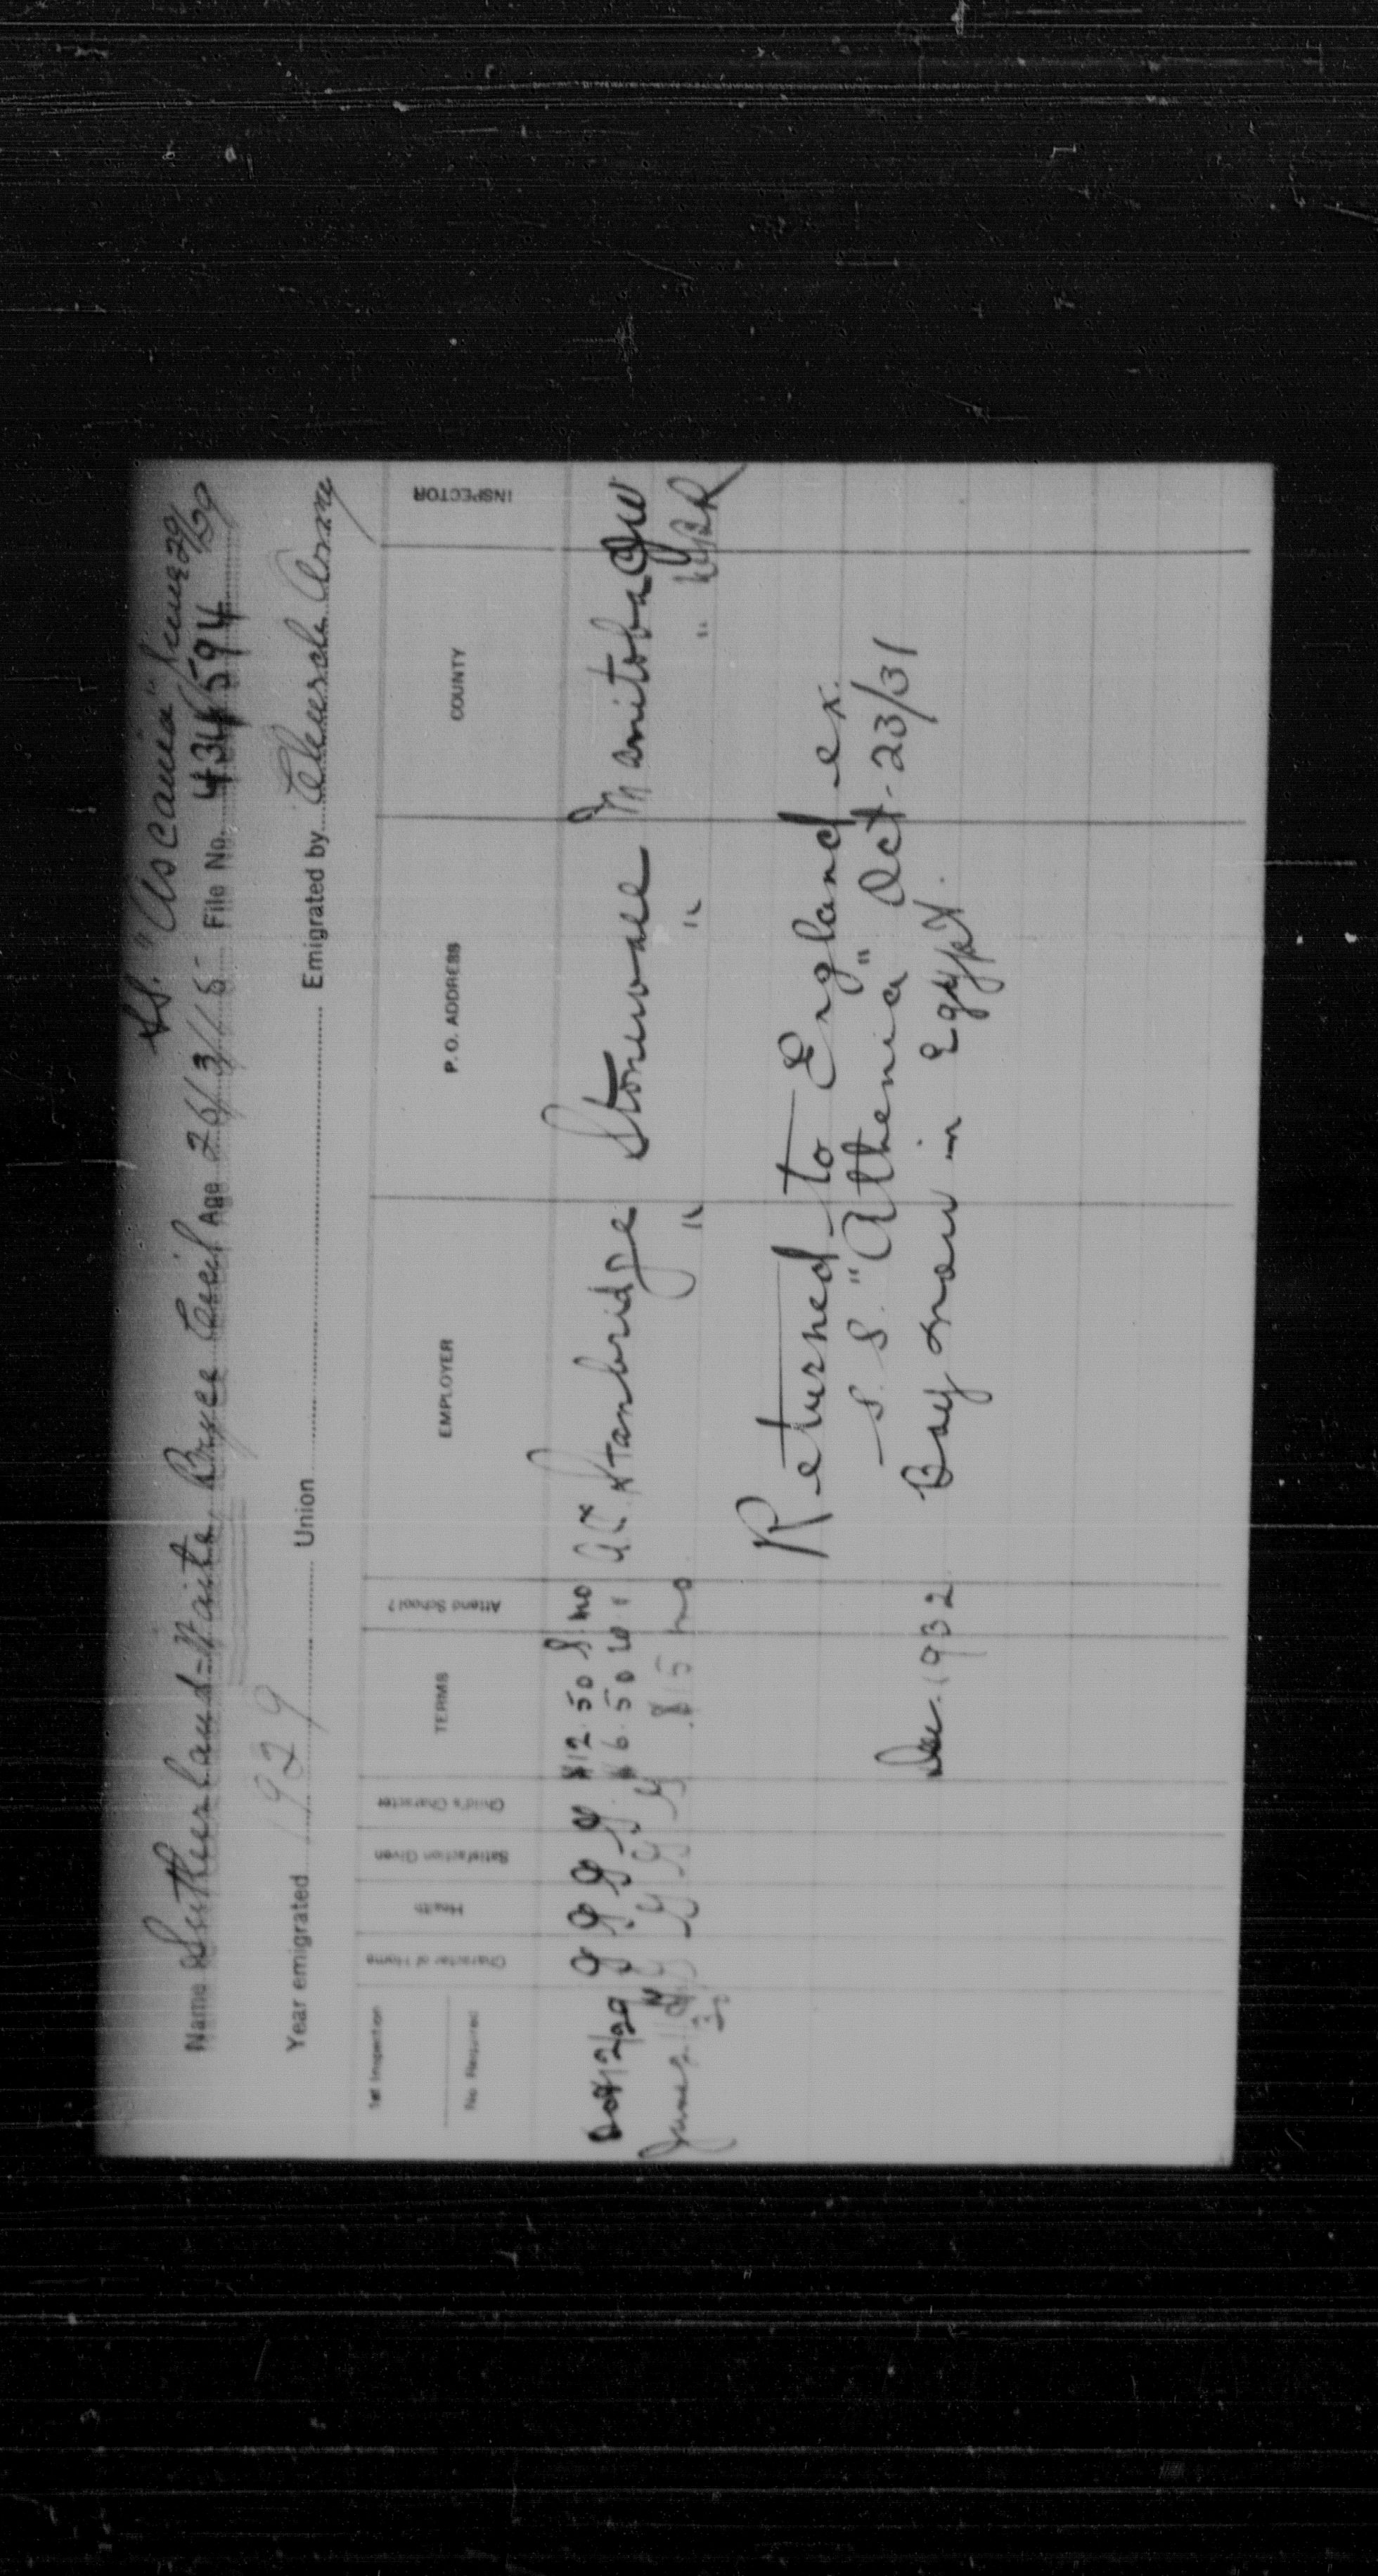 S.S. "Ascania" June 29/29
Name Sutherland-Waite Bryce Cecil Age 26/3/15 File No. 434594
Year emigrated 1929 Union Emigrated by Church Army
1st Inspection No Required Character of Home Health Satisfaction Given Child's Character TERMS Attend School? EMPLOYER P. O. ADDRESS COUNTY INSPECTOR
Oct 12/29 g g g g $12.50 S. no A C Stanbridge Stonewall Manitoba
$6.50 W
June g g g g $15 no " " "
Returned to England ex.
S. S. "Athenia" Oct-23/31
Dec. 1932 Boy now in Egypt.